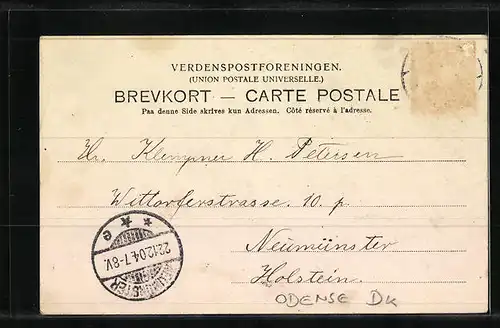 VERDENSPOSTFORENINGEN.
(UNION POSTALE UNIVERSELLE.)
BREVKORT — CARTE POSTALE
Paa denne Side skrives kun Adressen. Côté réservé à l'adresse.
Hr. Klempner H. Petersen
Wittorferstrasse. 10. p.
Neumünster
Holstein.
NEUMÜNSTER
22.12.04.7-8V.
* * e
ODENSE DK